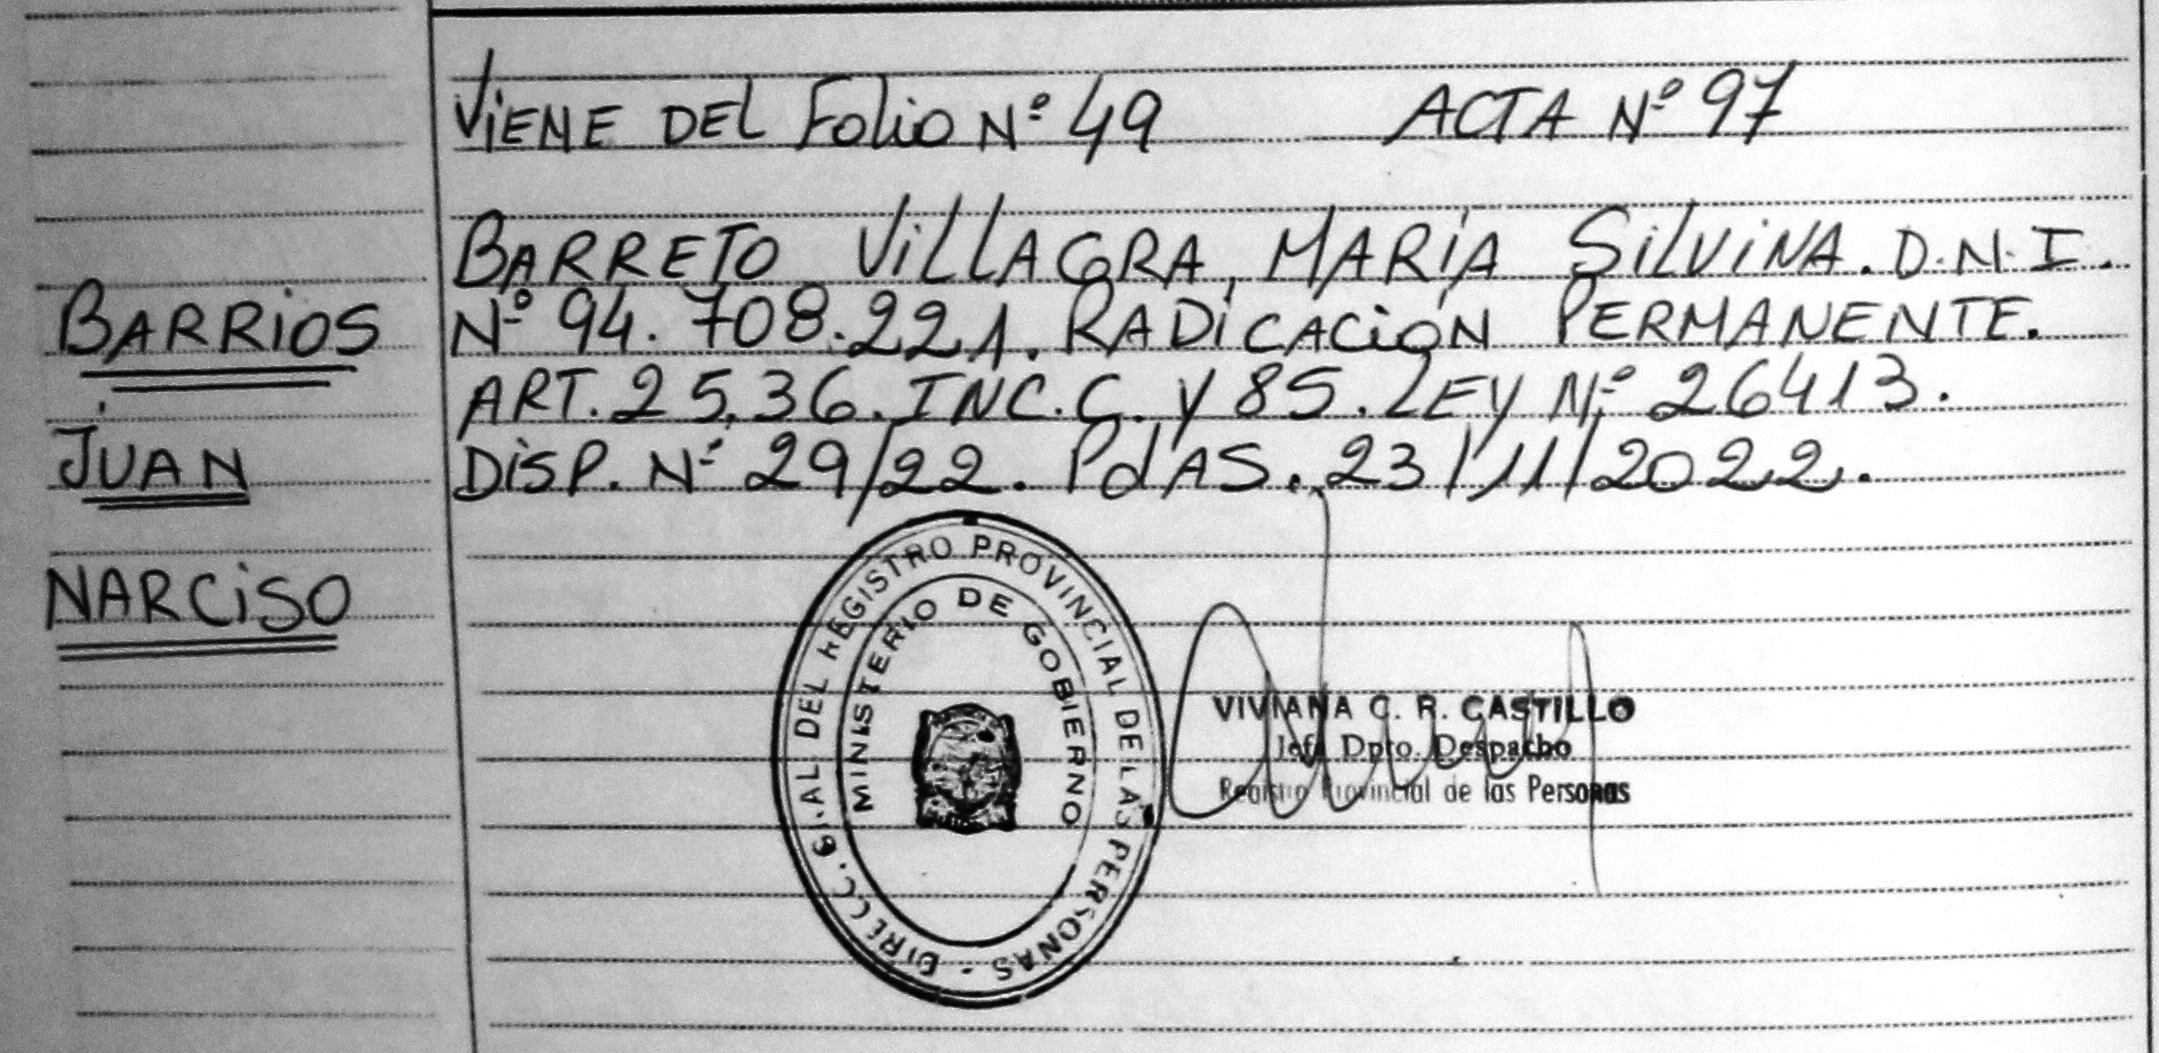 VIENE DEL FOLIO Nº 49 ACTA Nº 97
BARRIOS
JUAN
NARCISO
BARRETO VILLAGRA, MARÍA SILVINA. D.N.I.
Nº 94.708.221. RADICACIÓN PERMANENTE.
ART. 25,36. INC. C. Y 85. LEY Nº 26413.
DISP. Nº 29/22. PdAS. 23/11/2022.
DIRECC. GRAL DEL REGISTRO PROVINCIAL DE LAS PERSONAS -
MINISTERIO DE GOBIERNO
VIVIANA C. R. CASTILLO
Jefa Dpto. Despacho
Registro Provincial de las Personas